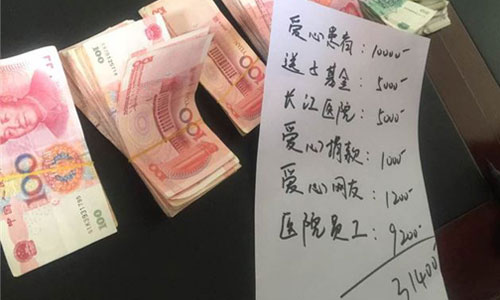 爱心患者：10000-
送子基金：5000-
长江医院：5000-
爱心捐款：1000-
爱心网友：1200-
医院员工：9200-
31400
100
100
100